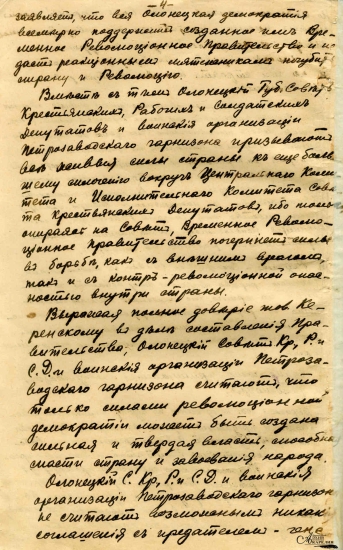 -4-
заявляетъ, что вся Олонецкая демократія
всемѣрно поддержитъ созданное имъ Вре-
менное Революціонное Правительство и не
дастъ реакціоннымъ мятежникамъ погубить
страну и Революцію.
Вмѣстѣ съ тѣмъ Олонецкій Губ. Совѣтъ
Крестьянскихъ, Рабочихъ и Солдатскихъ
Депутатовъ и воинскія организаціи
Петрозаводскаго гарнизона призываютъ
всѣ живыя силы страны къ еще боль-
шему сплоченію вокругъ Центральнаго Коми-
тета и Исполнительнаго Комитета Совѣ-
та Крестьянскихъ Депутатовъ, ибо только
опираясь на Совѣты, Временное Револю-
ціонное Правительство почерпнетъ силы
въ борьбѣ, какъ съ внѣшнимъ врагомъ,
такъ и съ контръ-революціонной опас-
ностью внутри страны.
Выражая полное довѣріе тов. Ке-
ренскому въ дѣлѣ составленія Пра-
вительства. Олонецкій Совѣтъ Кр, Р и
С. Д. и воинскія организаціи Петроза-
водскаго гарнизона считаютъ, что
только силами революціонной
демократіи можетъ быть создана
сильная и твердая власть, способная
спасти страну и завоеванія народа.
Олонецкій С. Кр, Р и С. Д. и воинскія
организаціи Петрозаводскаго гарнизона
не считаютъ возможнымъ никакія
соглашенія съ предателем-